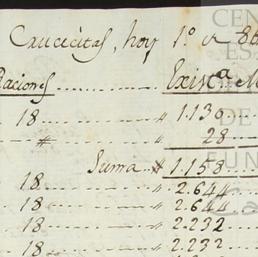 Crucecitas, hoy 1º
Raciones Existª
18 " 1.130
" " 28
Suma 1.158
18 " 2.644
18 " 2.644
18 " 2.232
18 " 2.232